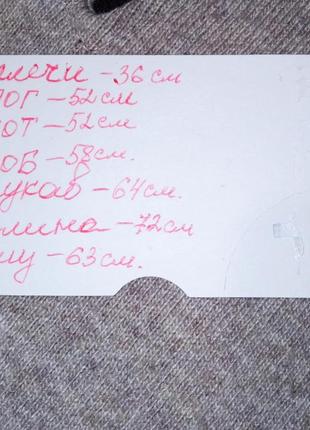 плечи - 36 см
ПОГ - 52 см
ПОТ - 52 см
ПОБ - 58 см.
рукав - 64 см.
длина - 72 см
шу - 63 см.